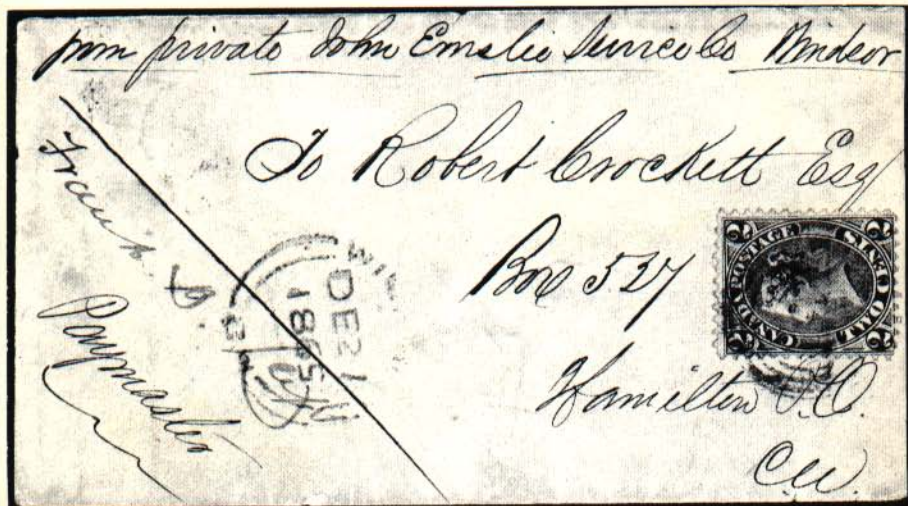 from private John Emslie Service Co Windsor
To Robert Crockett Esq
Box 527
Hamilton P.O.
C.W.
Frank D.
Paymaster
DE 21
1865
CANADA POSTAGE
TWO CENTS
2 2 2 2